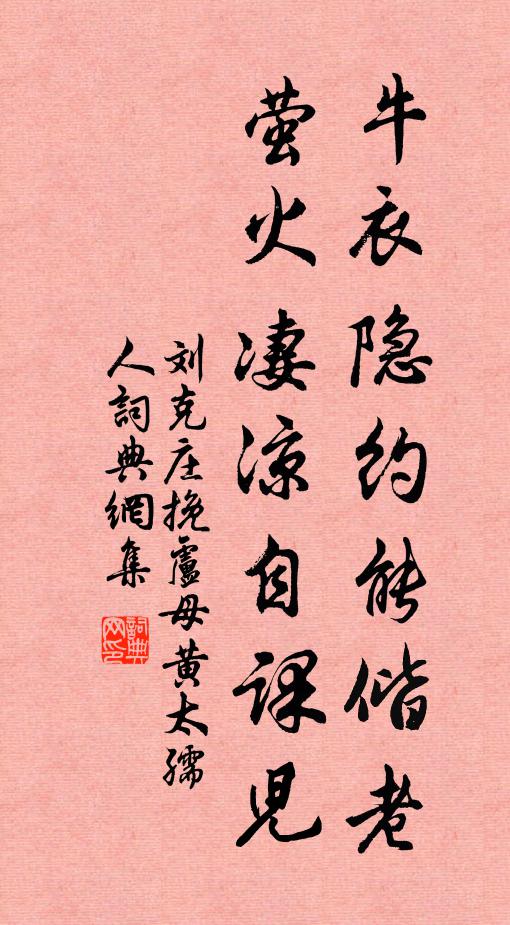 牛衣隐约能偕老
萤火凄凉自课児
刘克庄挽盧母黄太孺
人詞典網集
詞典网印